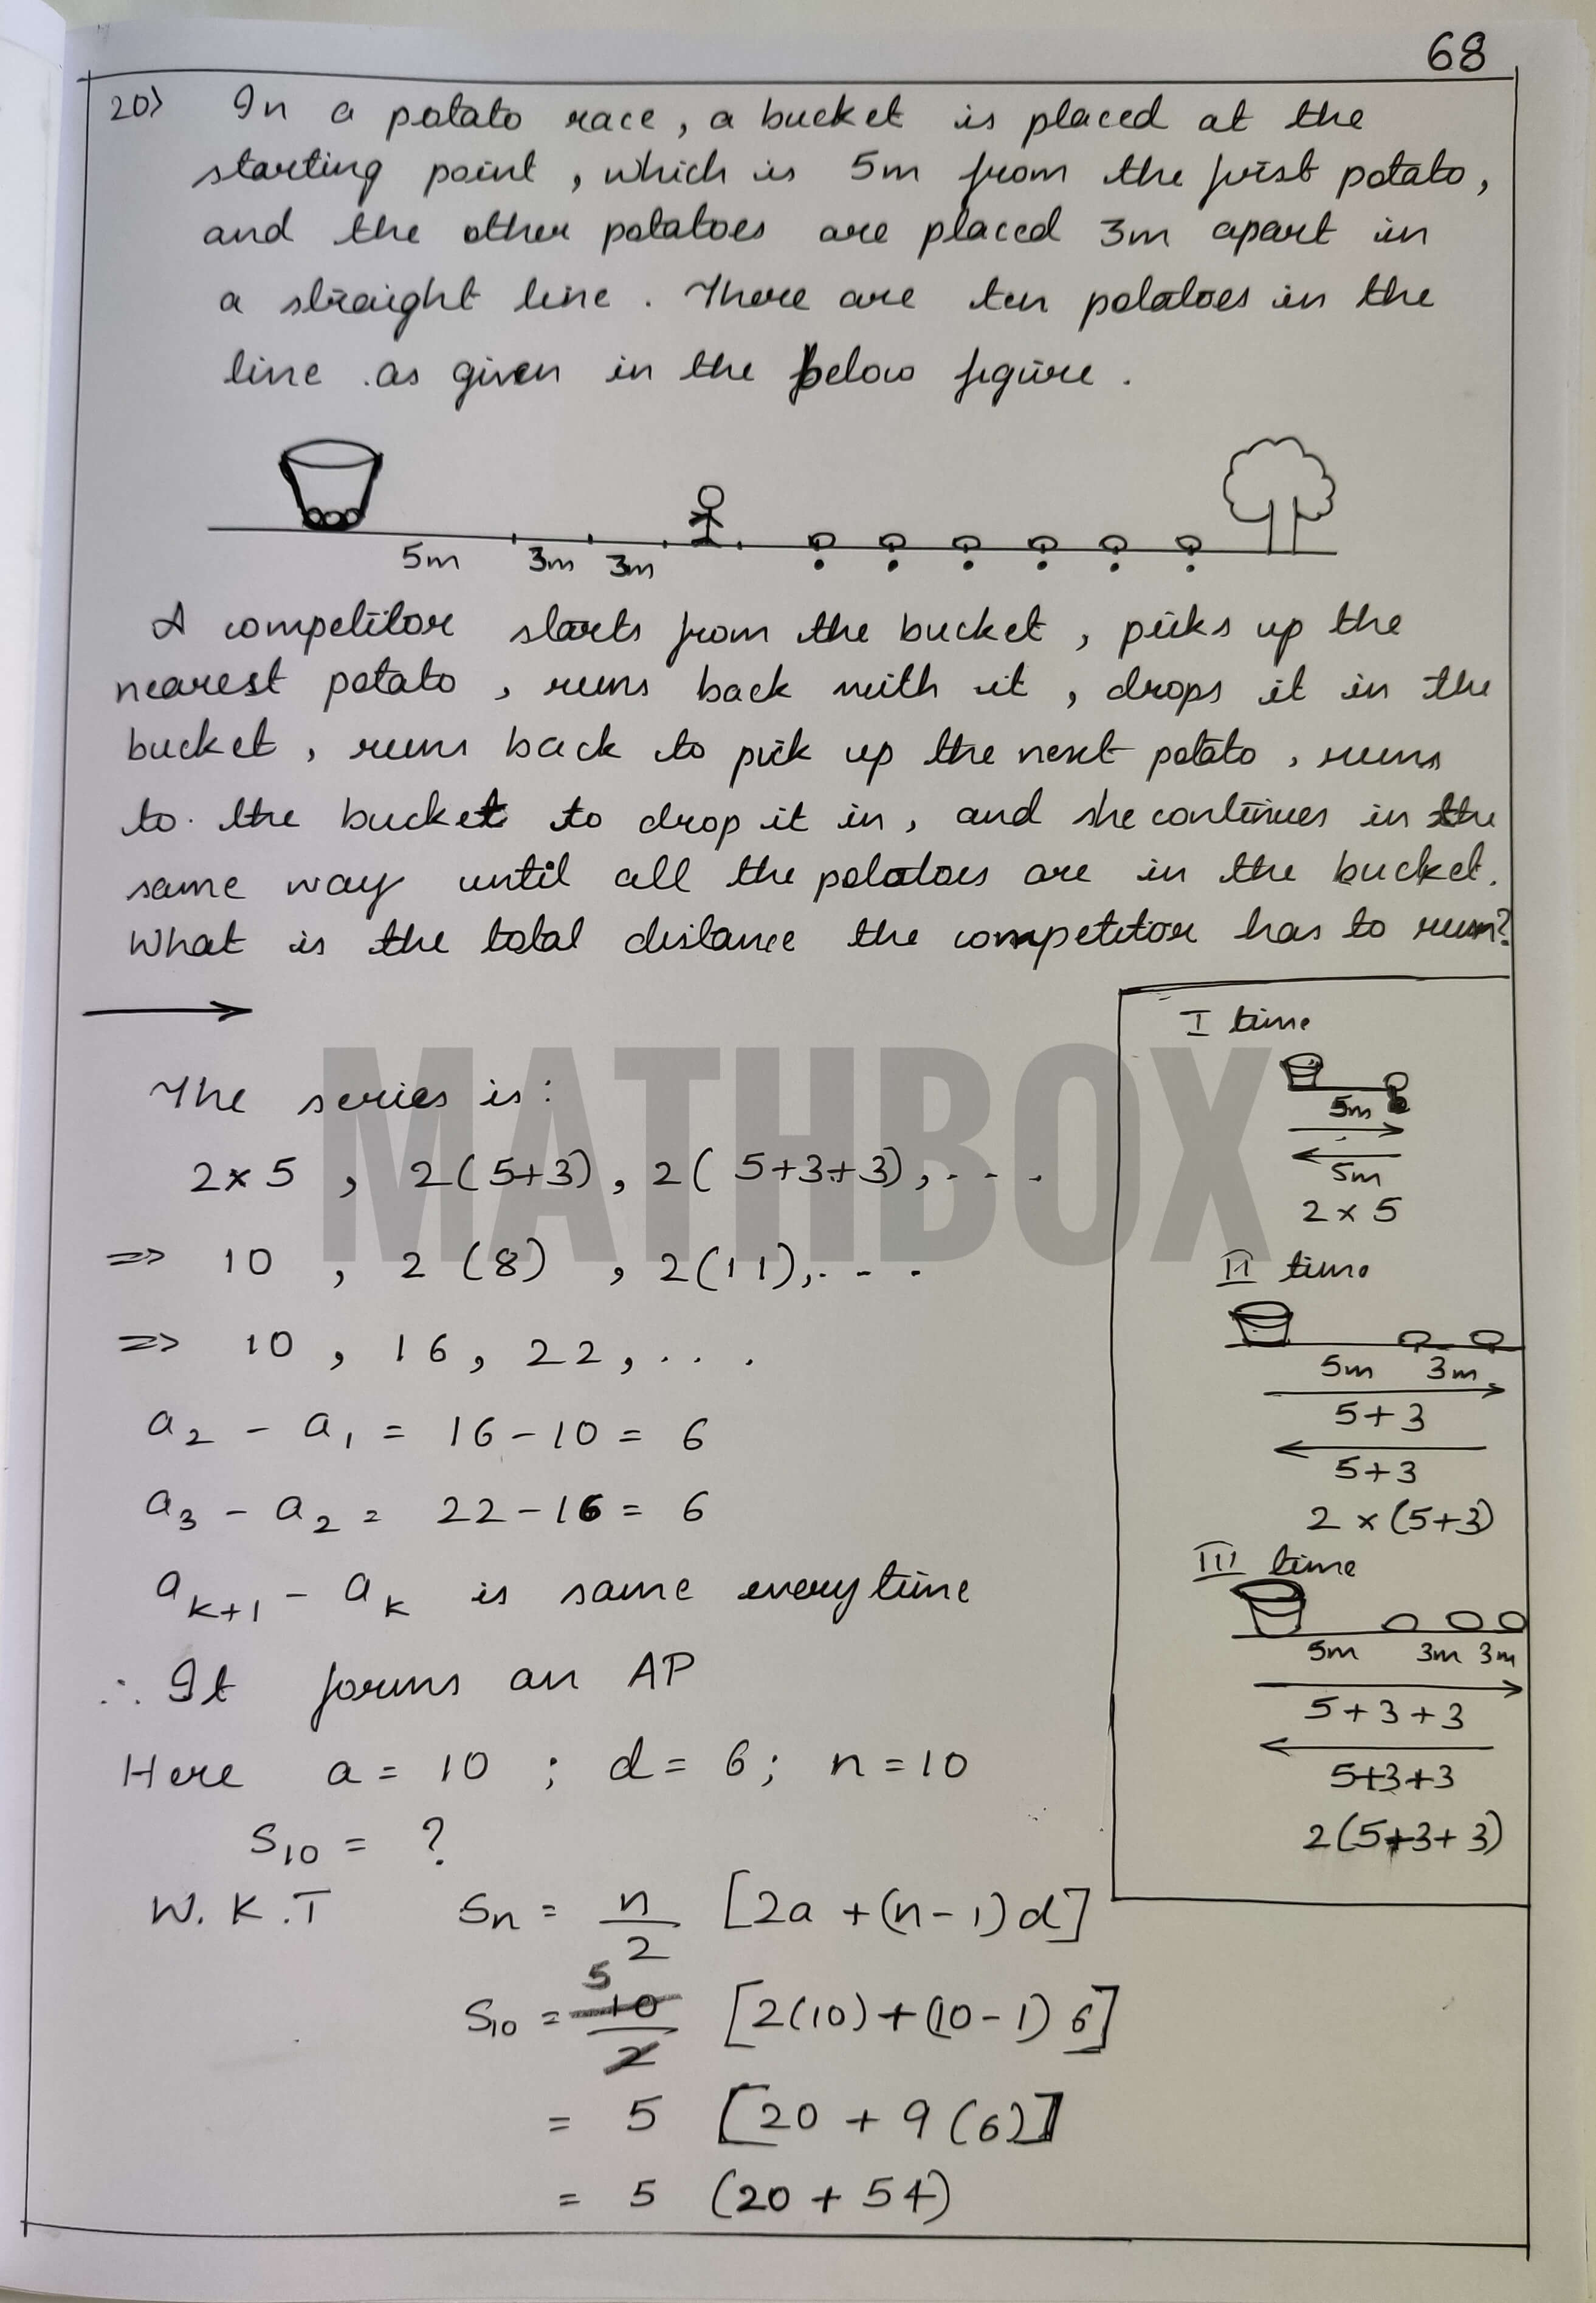 68
20) In a potato race, a bucket is placed at the
starting point, which is 5m from the first potato,
and the other potatoes are placed 3m apart in
a straight line. There are ten potatoes in the
line as given in the below figure.
5m 3m 3m
A competitor starts from the bucket, picks up the
nearest potato, runs back with it, drops it in the
bucket, runs back to pick up the next potato, runs
to the bucket to drop it in, and she continues in the
same way until all the potatoes are in the bucket.
What is the total distance the competitor has to run?
MATHBOX
The series is:
2×5, 2(5+3), 2(5+3+3),...
=> 10, 2(8), 2(11),...
=> 10, 16, 22,...
a₂ - a₁ = 16-10 = 6
a₃ - a₂ = 22-16 = 6
aₖ₊₁ - aₖ is same everytime
∴ It forms an AP
Here a = 10 ; d = 6; n = 10
S₁₀ = ?
W.K.T Sn = n/2 [2a + (n-1)d]
5
S₁₀ = 10/2 [2(10) + (10-1) 6]
= 5 [20 + 9(6)]
= 5 (20 + 54)
I time
5m
5m
2 × 5
II time
5m 3m
5+3
5+3
2 × (5+3)
III time
5m 3m 3m
5+3+3
5+3+3
2(5+3+3)